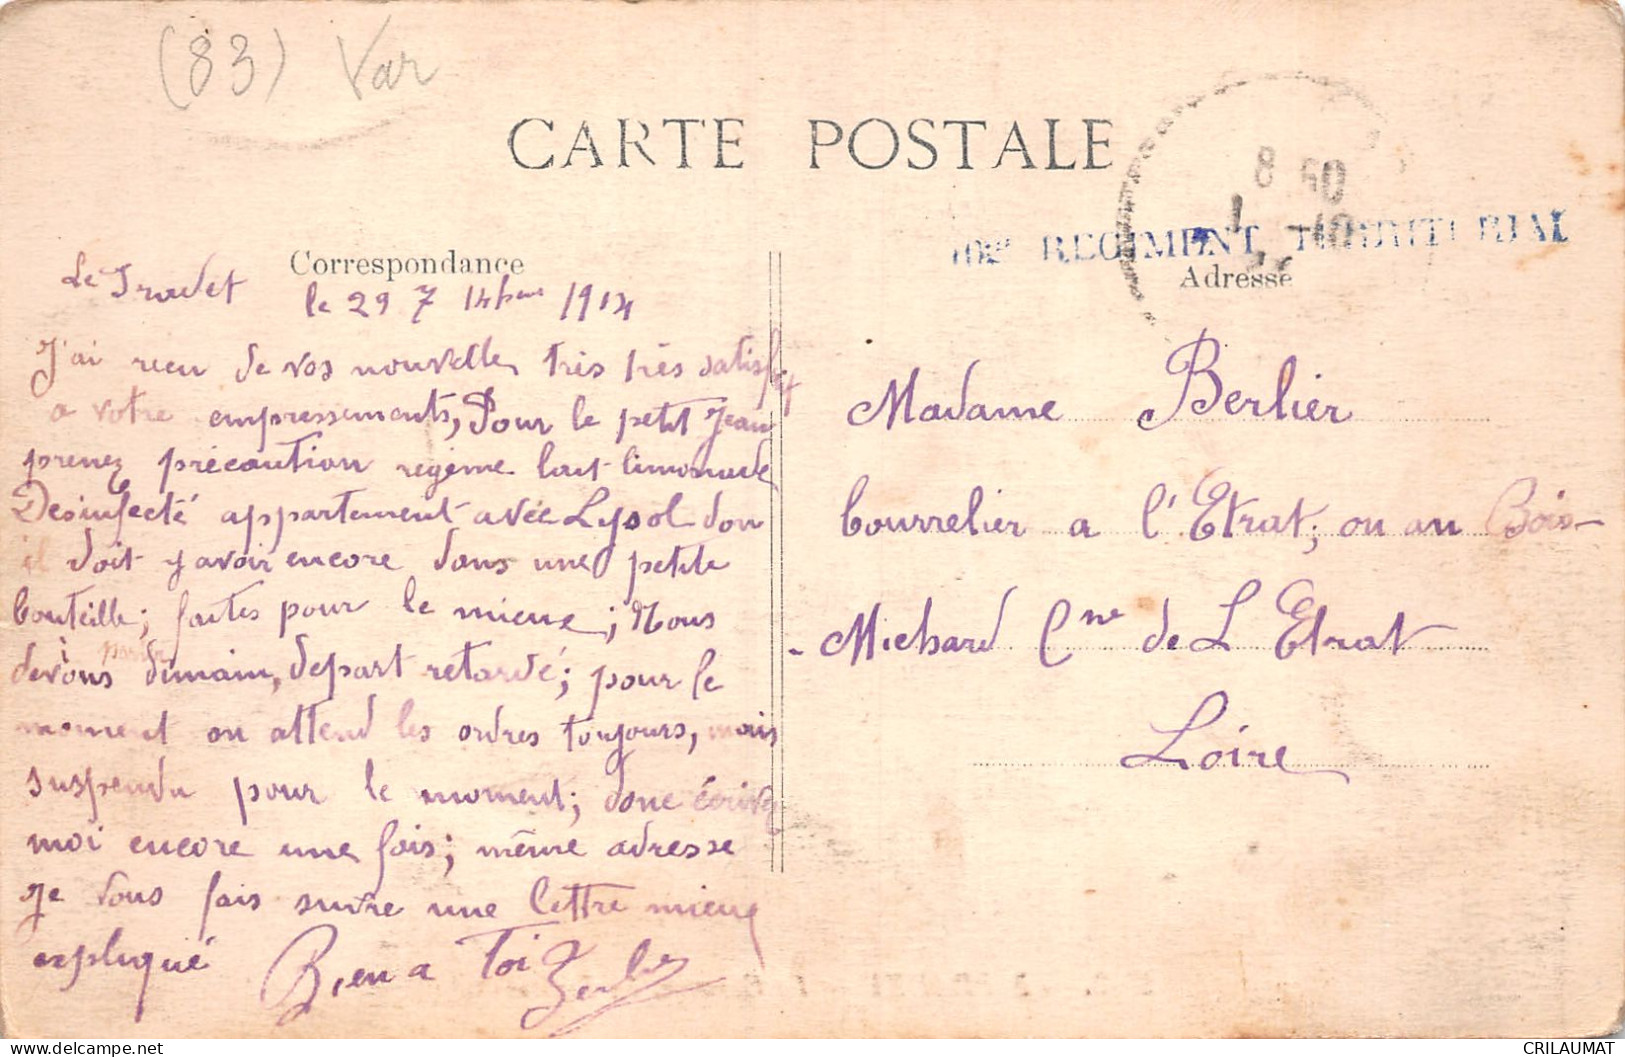 (83) Var
CARTE POSTALE
8 50
REGIMENT TERRITORIAL
Correspondance
Adresse
Le Pradet
le 29 7bre 1914
J'ai reçu de vos nouvelles très très satisfait
a votre empressements, Pour le petit Jean
prenez précaution régime lait limonade
Desinfecté appartement avec Lysol don
il doit y avoir encore dans une petite
bouteille; faites pour le mieux; Nous
devons partir demain, depart retardé; pour le
moment on attend les ordres toujours, mais
suspendu pour le moment; donc écrivez
moi encore une fois; même adresse
Je vous fais suivre une lettre mieux
expliqué Bien a Toi
Madame Berlier
bourrelier a l'Etrat; ou au Bois-
-Michard Cne de L Etrat
Loire
CRILAUMAT